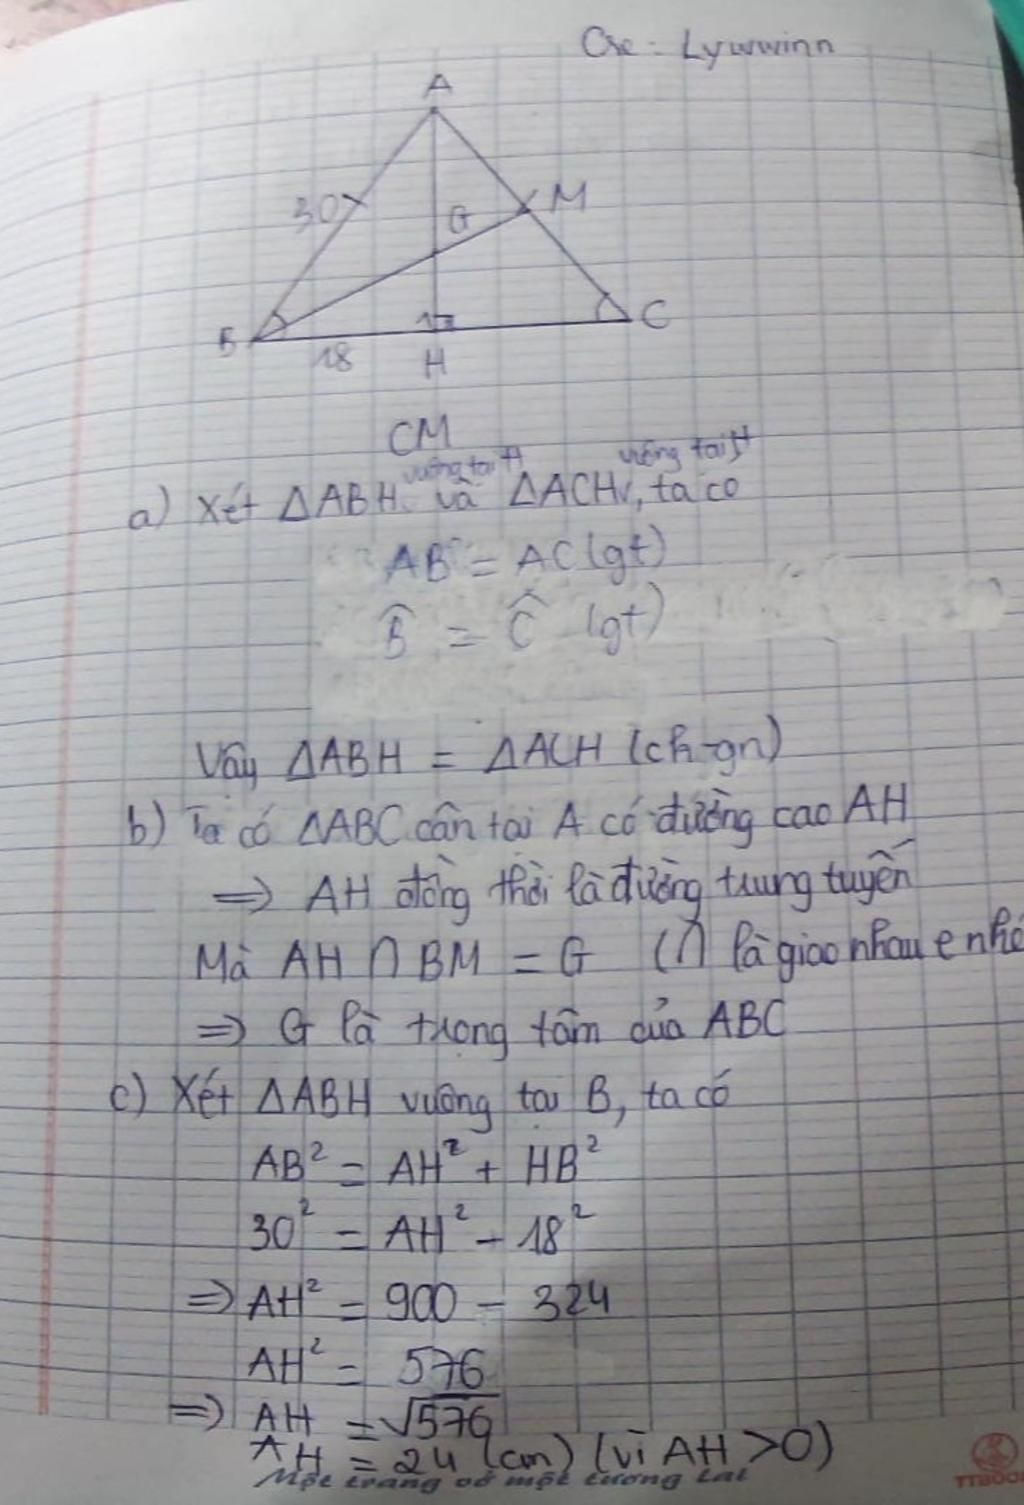 Cre: Lywwinn
A
30
G
M
B
C
18
H
CM
vuông tại H
vuông tại H
a) Xét ΔABH và ΔACH, ta có
AB = AC (gt)
B̂ = Ĉ (gt)
Vậy ΔABH = ΔACH (ch-gn)
b) Ta có ΔABC cân tại A có đường cao AH
=> AH đồng thời là đường trung tuyến
Mà AH ∩ BM = G (∩ là giao nhau e nhé
=> G là trọng tâm của ABC
c) Xét ΔABH vuông tại B, ta có
AB² = AH² + HB²
30² = AH² - 18²
=> AH² = 900 - 324
AH² = 576
=> AH = √576
AH = 24 (cm) (vì AH > 0)
Một trang vở một tương lai